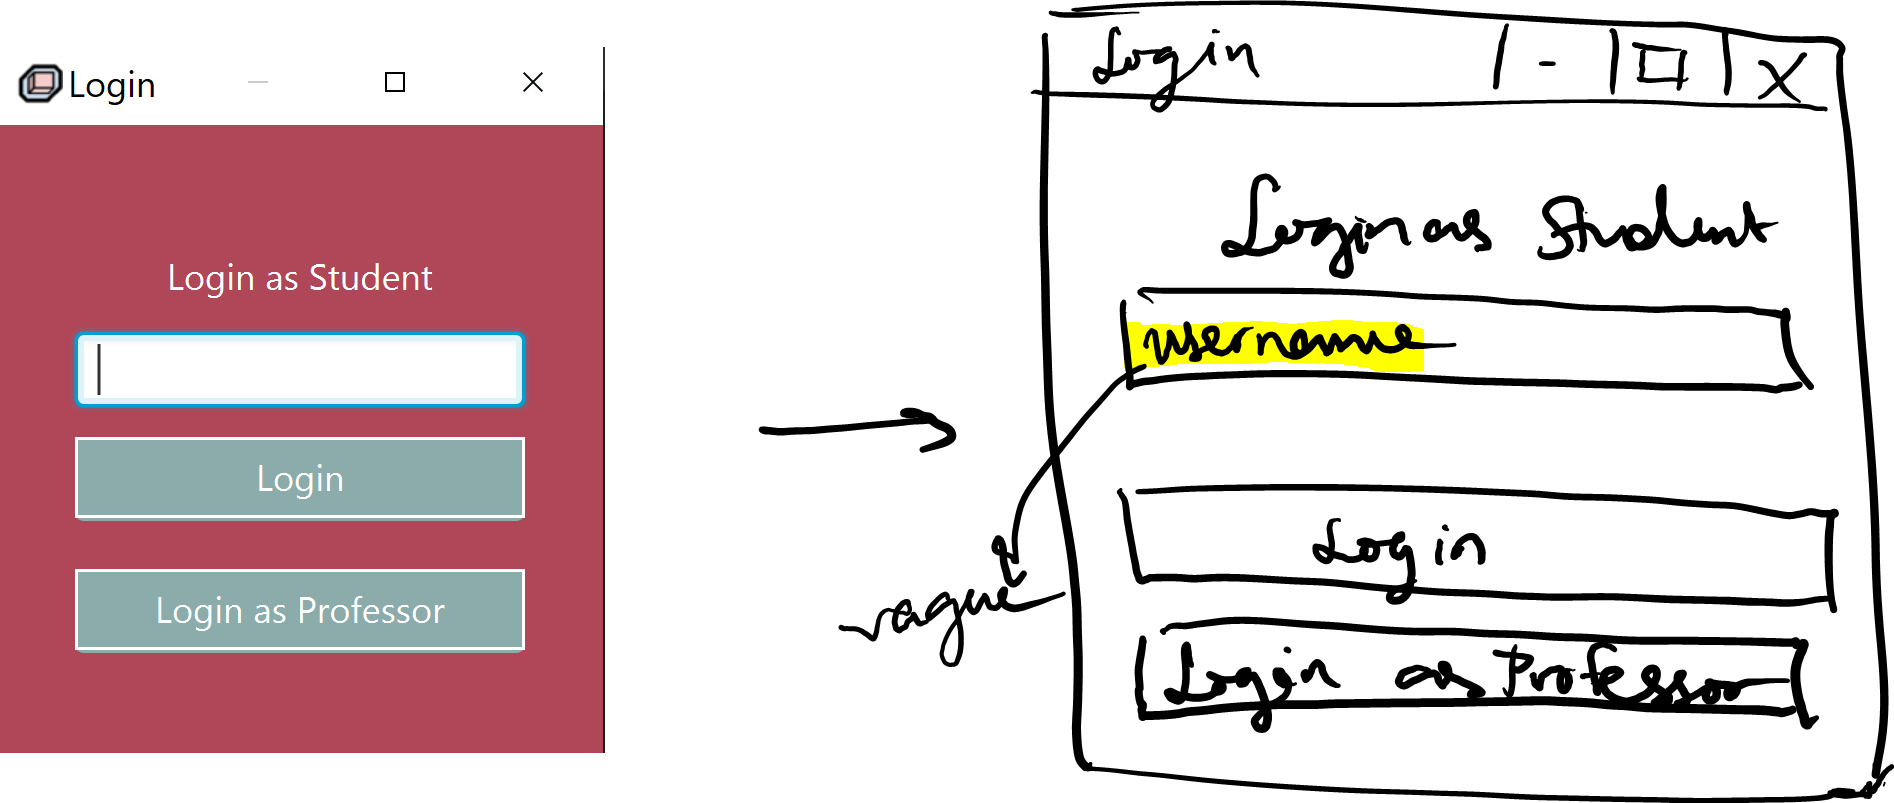 Login
Login as Student
Login
Login as Professor
Login
Login as Student
username
Login
vague
Login as Professor